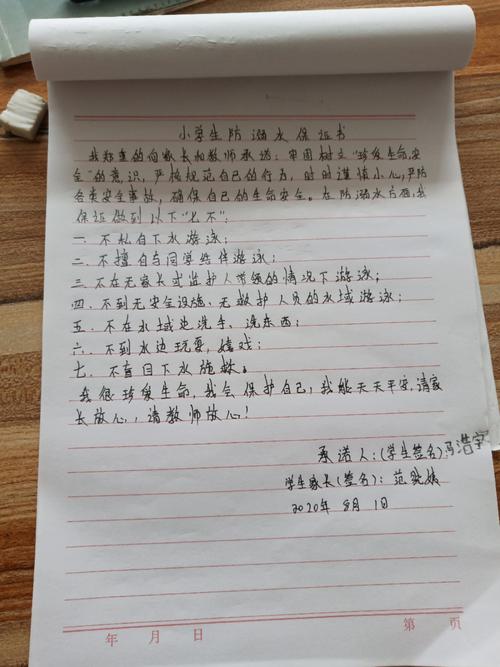 小学生防溺水保证书
我郑重的向家长和教师承诺：牢固树立“珍爱生命，安
全”的意识，严格规范自己的行为，时时谨慎小心，严防
各类安全事故，确保自己的生命安全。在防溺水方面，我
保证做到以下“七不”：
一．不私自下水游泳；
二．不擅自与同学结伴游泳；
三．不在无家长或监护人带领的情况下游泳；
四．不到无安全设施、无救护人员的水域游泳；
五．不在水域边洗手、洗东西；
六．不到水边玩耍，嬉戏；
七．不盲目下水施救。
我很珍爱生命，我会保护自己，我能天天平安，请家
长放心，请教师放心！
承诺人：（学生签名）冯浩宇
学生家长（签名）：范
2020年 8月 1日
年 月 日
第 页